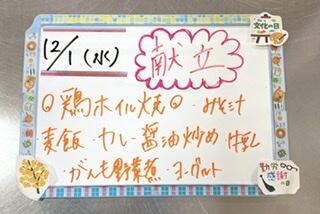 文化の日
12/1(水)
献立
◎鶏ホイル焼◎・みそ汁
麦飯・カレー醤油炒め・牛乳
・がんも野菜煮・ヨーグルト
勤労
感謝
の日